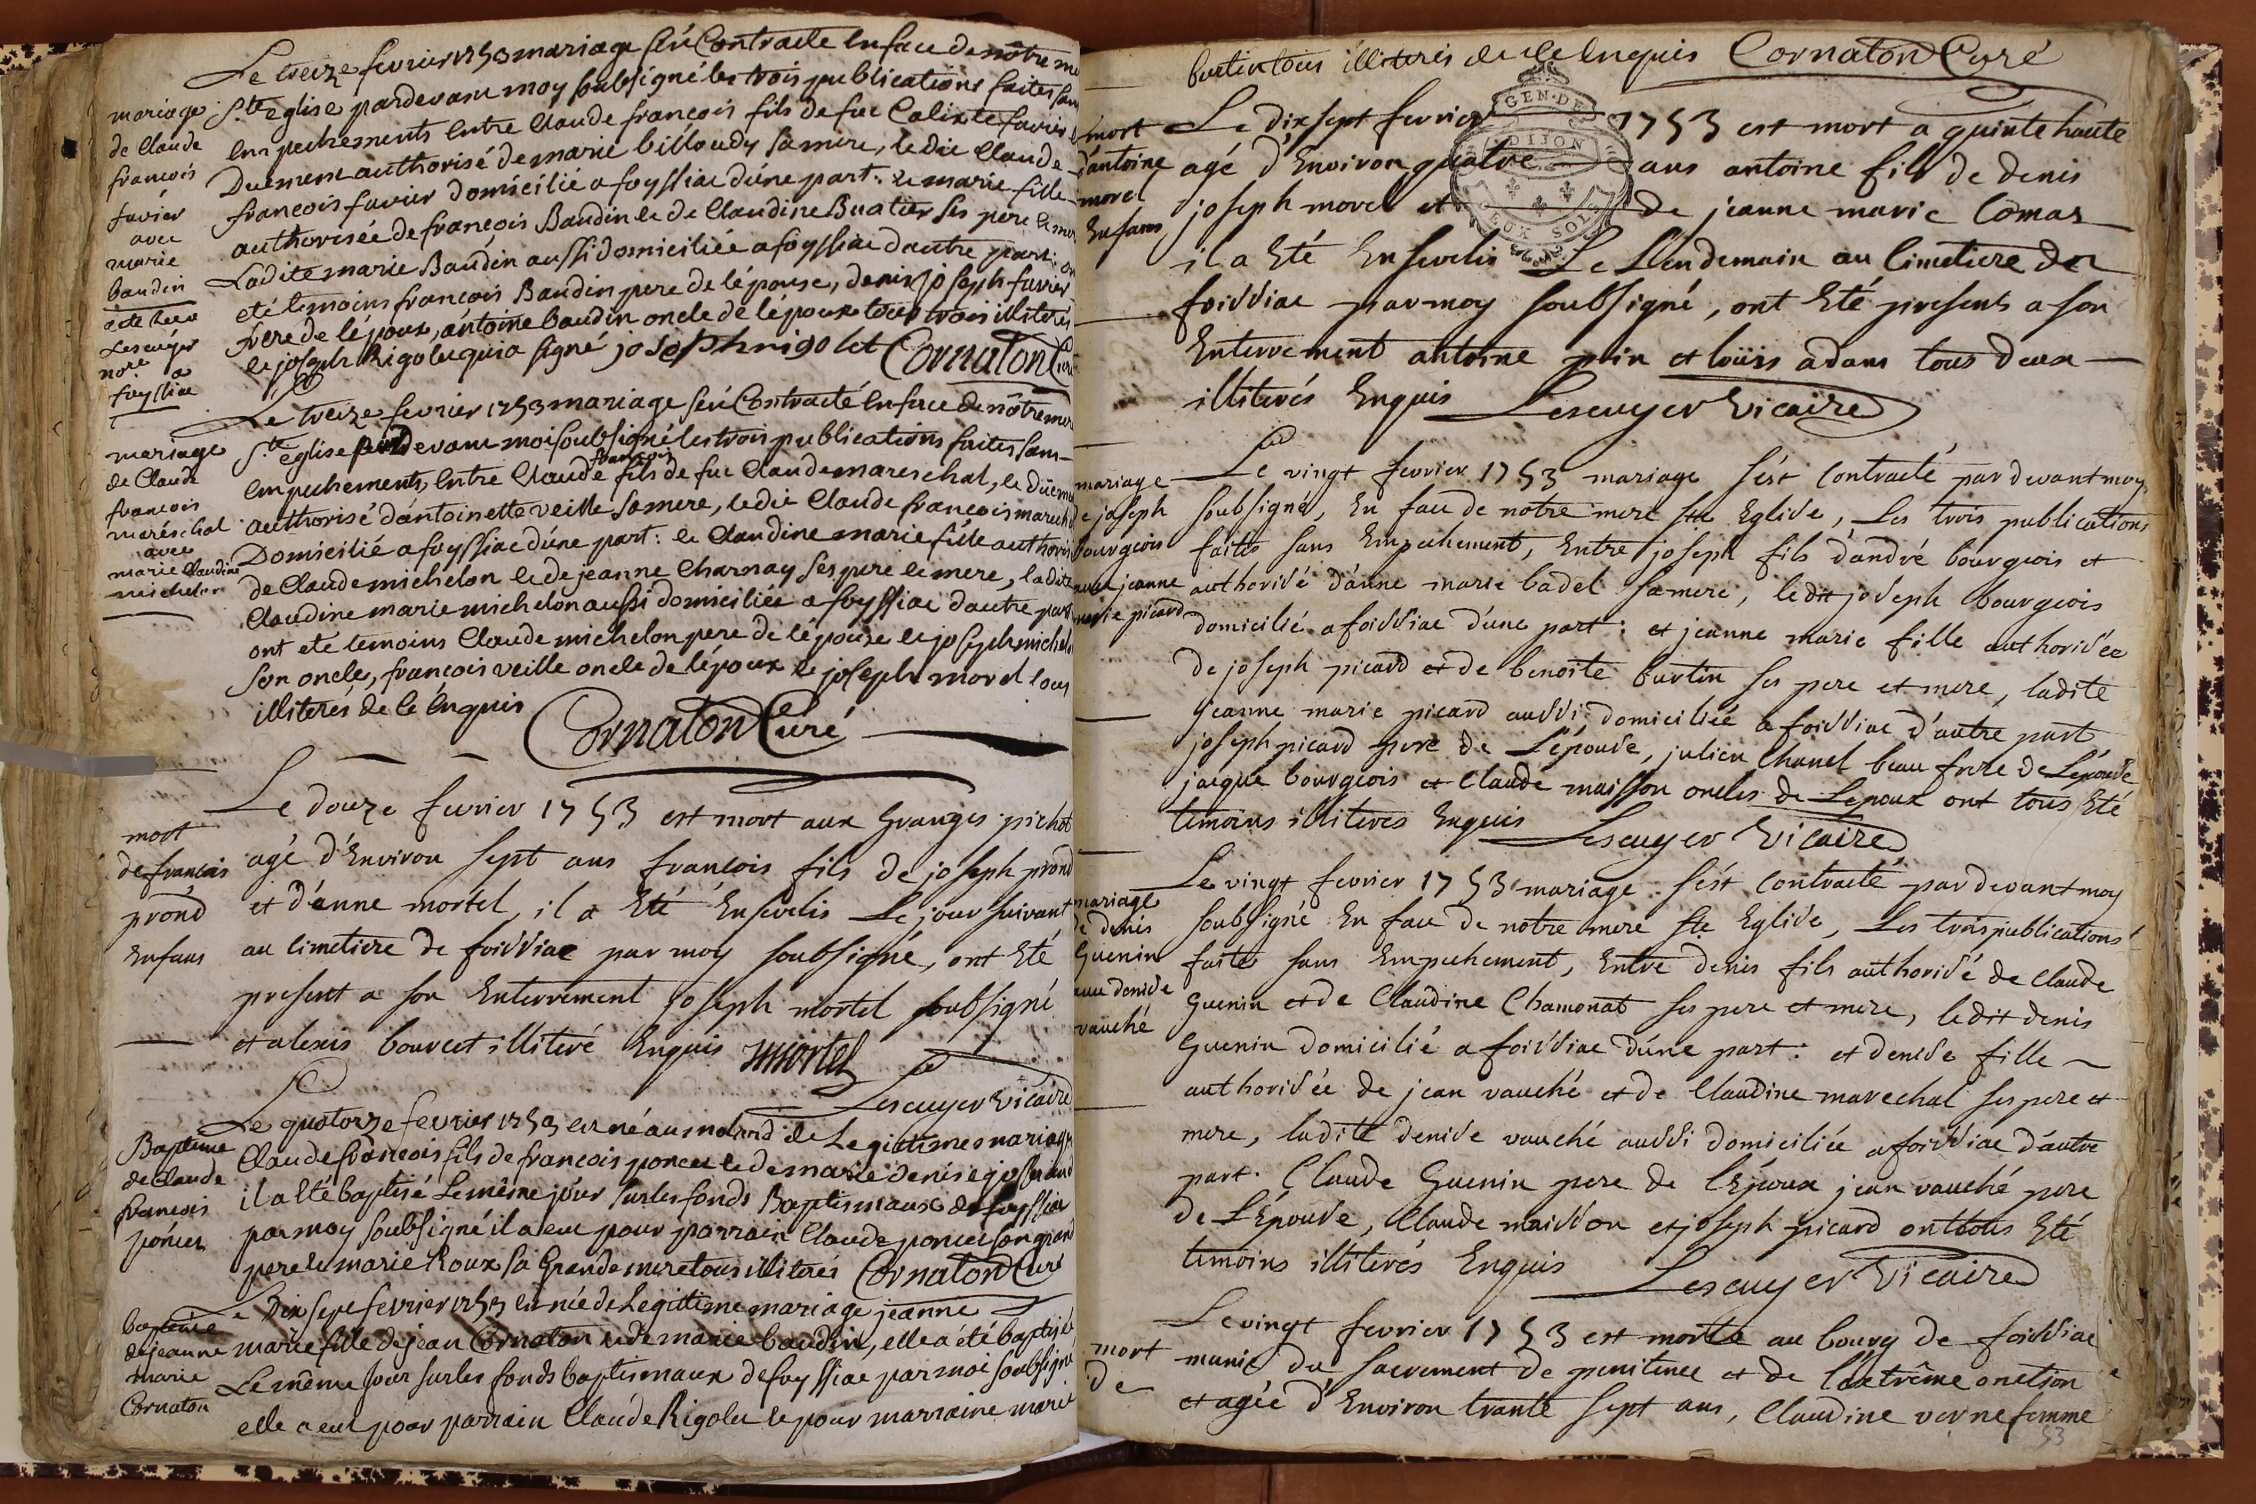 Le treize fevrier 1753 mariage s'eſt Contracté en face de nôtre me
mariage
de Claude
francois
favier
avec
marie
baudin
acte receu
Lescuyer
nore a
foyssiac
Ste Eglise pardevant moy soubsigné les trois publications faites sans
empechements entre Claude françois fils de fut Calixte favier
Duement authorisé de marie billoudy sa mere, ledit Claude
francois favier domicilié a foyssiac d'une part: et marie fille
authorisée de françois Baudin et de Claudine Buatier ses pere et mere
Ladite marie Baudin aussi domiciliée a foyssiac d'autre part: on
eté temoins francois Baudin pere de lépouse, denis joseph favier
frere de lépoux, antoine baudin oncle de lépouse tous trois illiterés
et joseph Rigolet qui a signé joseph rigolet Cornaton Curé
Le treize fevrier 1753 mariage s'eſt Contracté en face de nôtre mere
mariage
de Claude
francois
maréschal
avec
marie Claudine
michelon
Ste Eglise pardevant moi soubsigné les trois publications faites sans
empechements, entre Claude françois fils de fut Claude mareschal, et Duëment
authorisé d'antoinette veille sa mere, ledit Claude francois marechal
Domicilié a foyssiac d'une part: et Claudine marie fille authorisée
de Claude michelon et de jeanne Charnay ses pere et mere, ladite
Claudine marie michelon aussi domiciliée a foyssiac d'autre part
ont eté temoins Claude michelon pere de lépouse et joseph michelon
son oncle, francois veille oncle de lépoux et joseph morel tous
illiterés de ce Enquis
Cornaton Curé
Le douze fevrier 1753 est mort aux Granges pichot
mort
de francois
prond
Enfans
agé d'Environ sept ans francois fils de joseph prond
et d'anne mortel, il a Eté Ensevelis Le jour suivant
au cimetiere de foissiac par moy soubsigné, ont Eté
present a son Enterrement joseph mortel soubsigné
et alexis bourcet illiteré Enquis mortel
Lescuyer Vicaire
Le quatorze fevrier 1753 est né au molard de Legittimes mariage
Bapteme
de Claude
francois
poncet
Claude francois fils de francois poncet et de marie denise josserand
il a Eté baptisé Le même jour sur les fonds Baptismaux de foyssiac
par moy soubsigné il a eut pour parrain Claude poncet son grand
pere et marie Roux sa Grande mere tous illiterés Cornaton Curé
Le Dix sept fevrier 1753 est née de Legittime mariage jeanne
bapteme
de jeanne
marie
Cornaton
marie fille de jean Cornaton et de marie baudin, elle a été baptisée
Le même Jour sur les fonds baptismaux de foyssiac par moi soubsigné
elle a eut pour parrain Claude Rigolet et pour marraine marie
burtin tous illiterés de ce Enquis Cornaton Curé
GEN. DE
DIJON
DEUX SOLS
Le dix sept fevrier 1753 est mort a quinte haute
mort
d'antoine
morel
Enfans
agé d'Environ quatre ans antoine fils de denis
joseph morel et de jeanne marie Comas
il a Eté Ensevelis Le Lendemain au Cimetiere de
foissiac par moy soubsigné, ont Eté presents a son
Enterrement antoine pin et loüis adam tous deux
illiterés Enquis Lescuyer Vicaire
Le vingt fevrier 1753 mariage s'ést Contracté par devant moy
mariage
de joseph
bourgeois
avec jeanne
marie picard
soubsigné, En face de notre mere ste Eglise, Les trois publications
faites sans Empechement, Entre joseph fils d'andré bourgeois et
authorisé d'anne marie badel sa mere, ledit joseph bourgeois
domicilié a foissiac d'une part: et jeanne marie fille authorisée
de joseph picard et de benoite burtin ses pere et mere, ladite
jeanne marie picard aussi domiciliée a foissiac d'autre part
joseph picard pere de L'épouse, julien Chanel beau frere de L'épouse
jacque bourgeois et Claude maisson oncles de L'époux ont tous Eté
temoins illiteres Enquis Lescuyer Vicaire
Le vingt fevrier 1753 mariage s'ést contracté par devant moy
mariage
de denis
Guenin
avec denise
vauché
soubsigné En face de notre mere ste Eglise, Les trois publications
faites sans Empechement, Entre denis fils authorisé de Claude
Guenin et de Claudine Chamonat ses pere et mere, ledit denis
Guenin domicilié a foissiac d'une part: et denise fille
authorisée de jean vauché et de Claudine marechal ses pere et
mere, ladite denise vauché aussi domiciliée a foissiac d'autre
part. Claude Guenin pere de l'époux jean vauché pere
de L'Epouse, Claude maisson et joseph picard ont tous Eté
temoins illiterés Enquis Lescuyer Vicaire
Le vingt fevrier 1753 est morte au bourg de foissiac
mort
de
munie du sacrement de penitence et de l'extrême onction
et agée d'Environ trante sept ans, Claudine verne femme
53